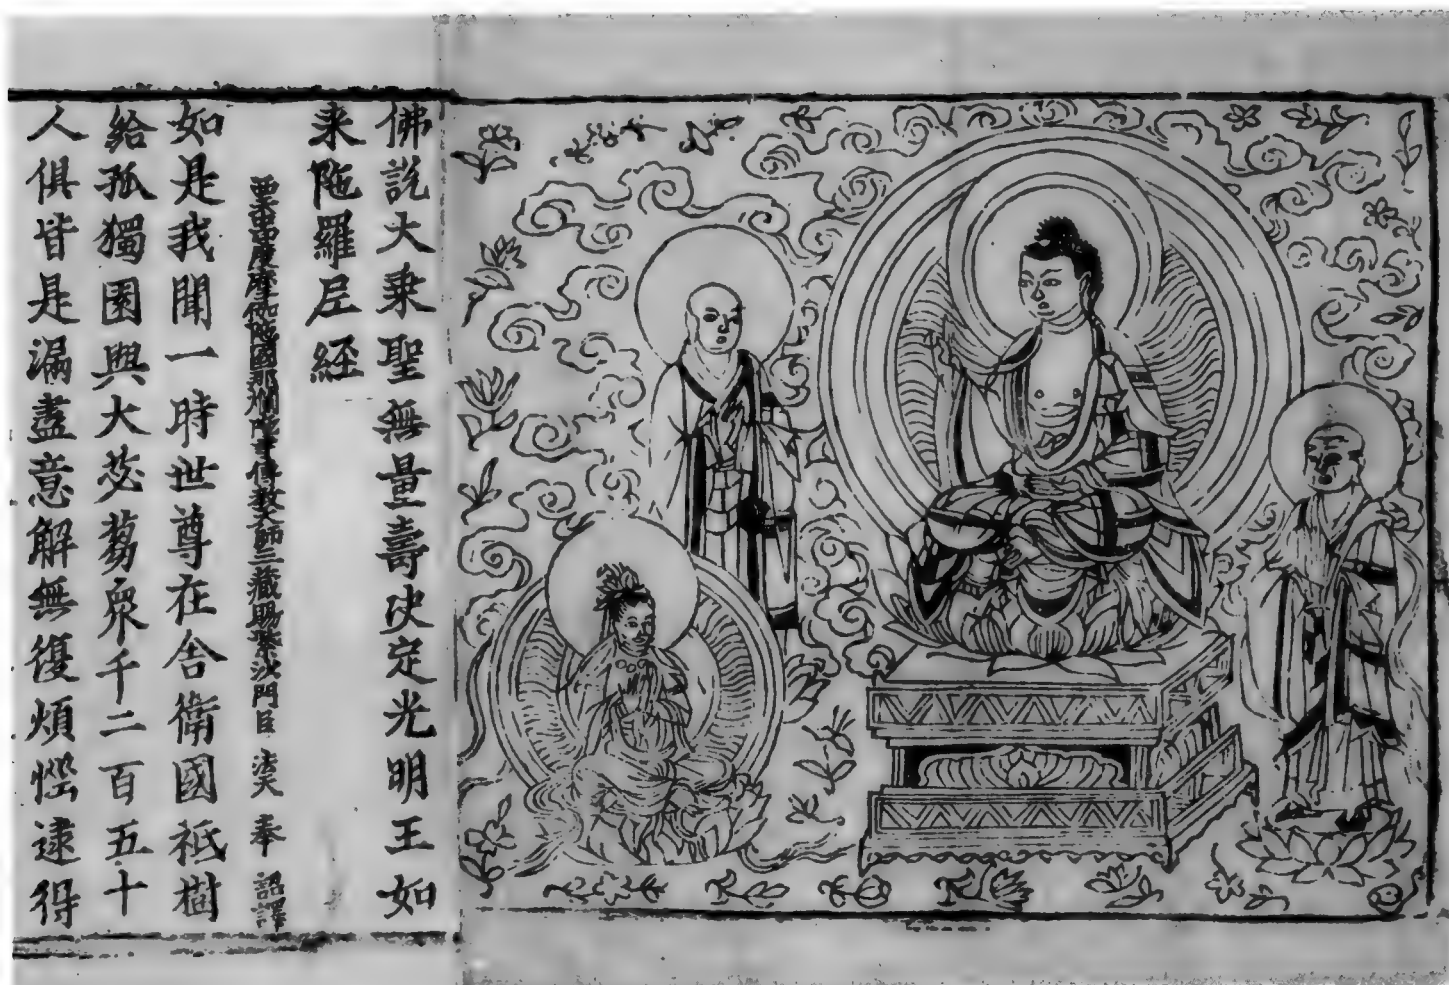 佛説大乗聖無量壽决定光明王如
来陁羅尼經
摩伽陁國那爛陁寺傳教大師三藏賜紫沙門臣 法天 奉 詔譯
如是我聞一時世尊在舎衛國祇樹
給孤獨園與大苾蒭衆千二百五十
人俱皆是漏盡意解無復煩惱逮得